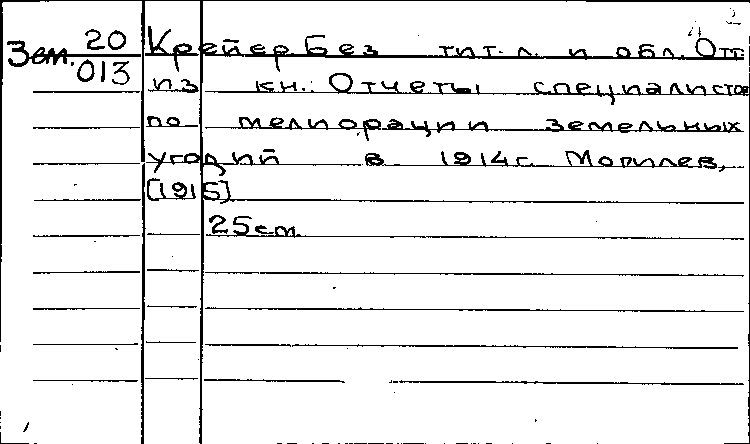 2
Зем. 20
013
Крейер Без тит. л. и обл. Отт.
из кн.: Отчеты специалистов
по мелиорации земельных
угодий в 1914 г. Могилев,
[1915]
25 см.